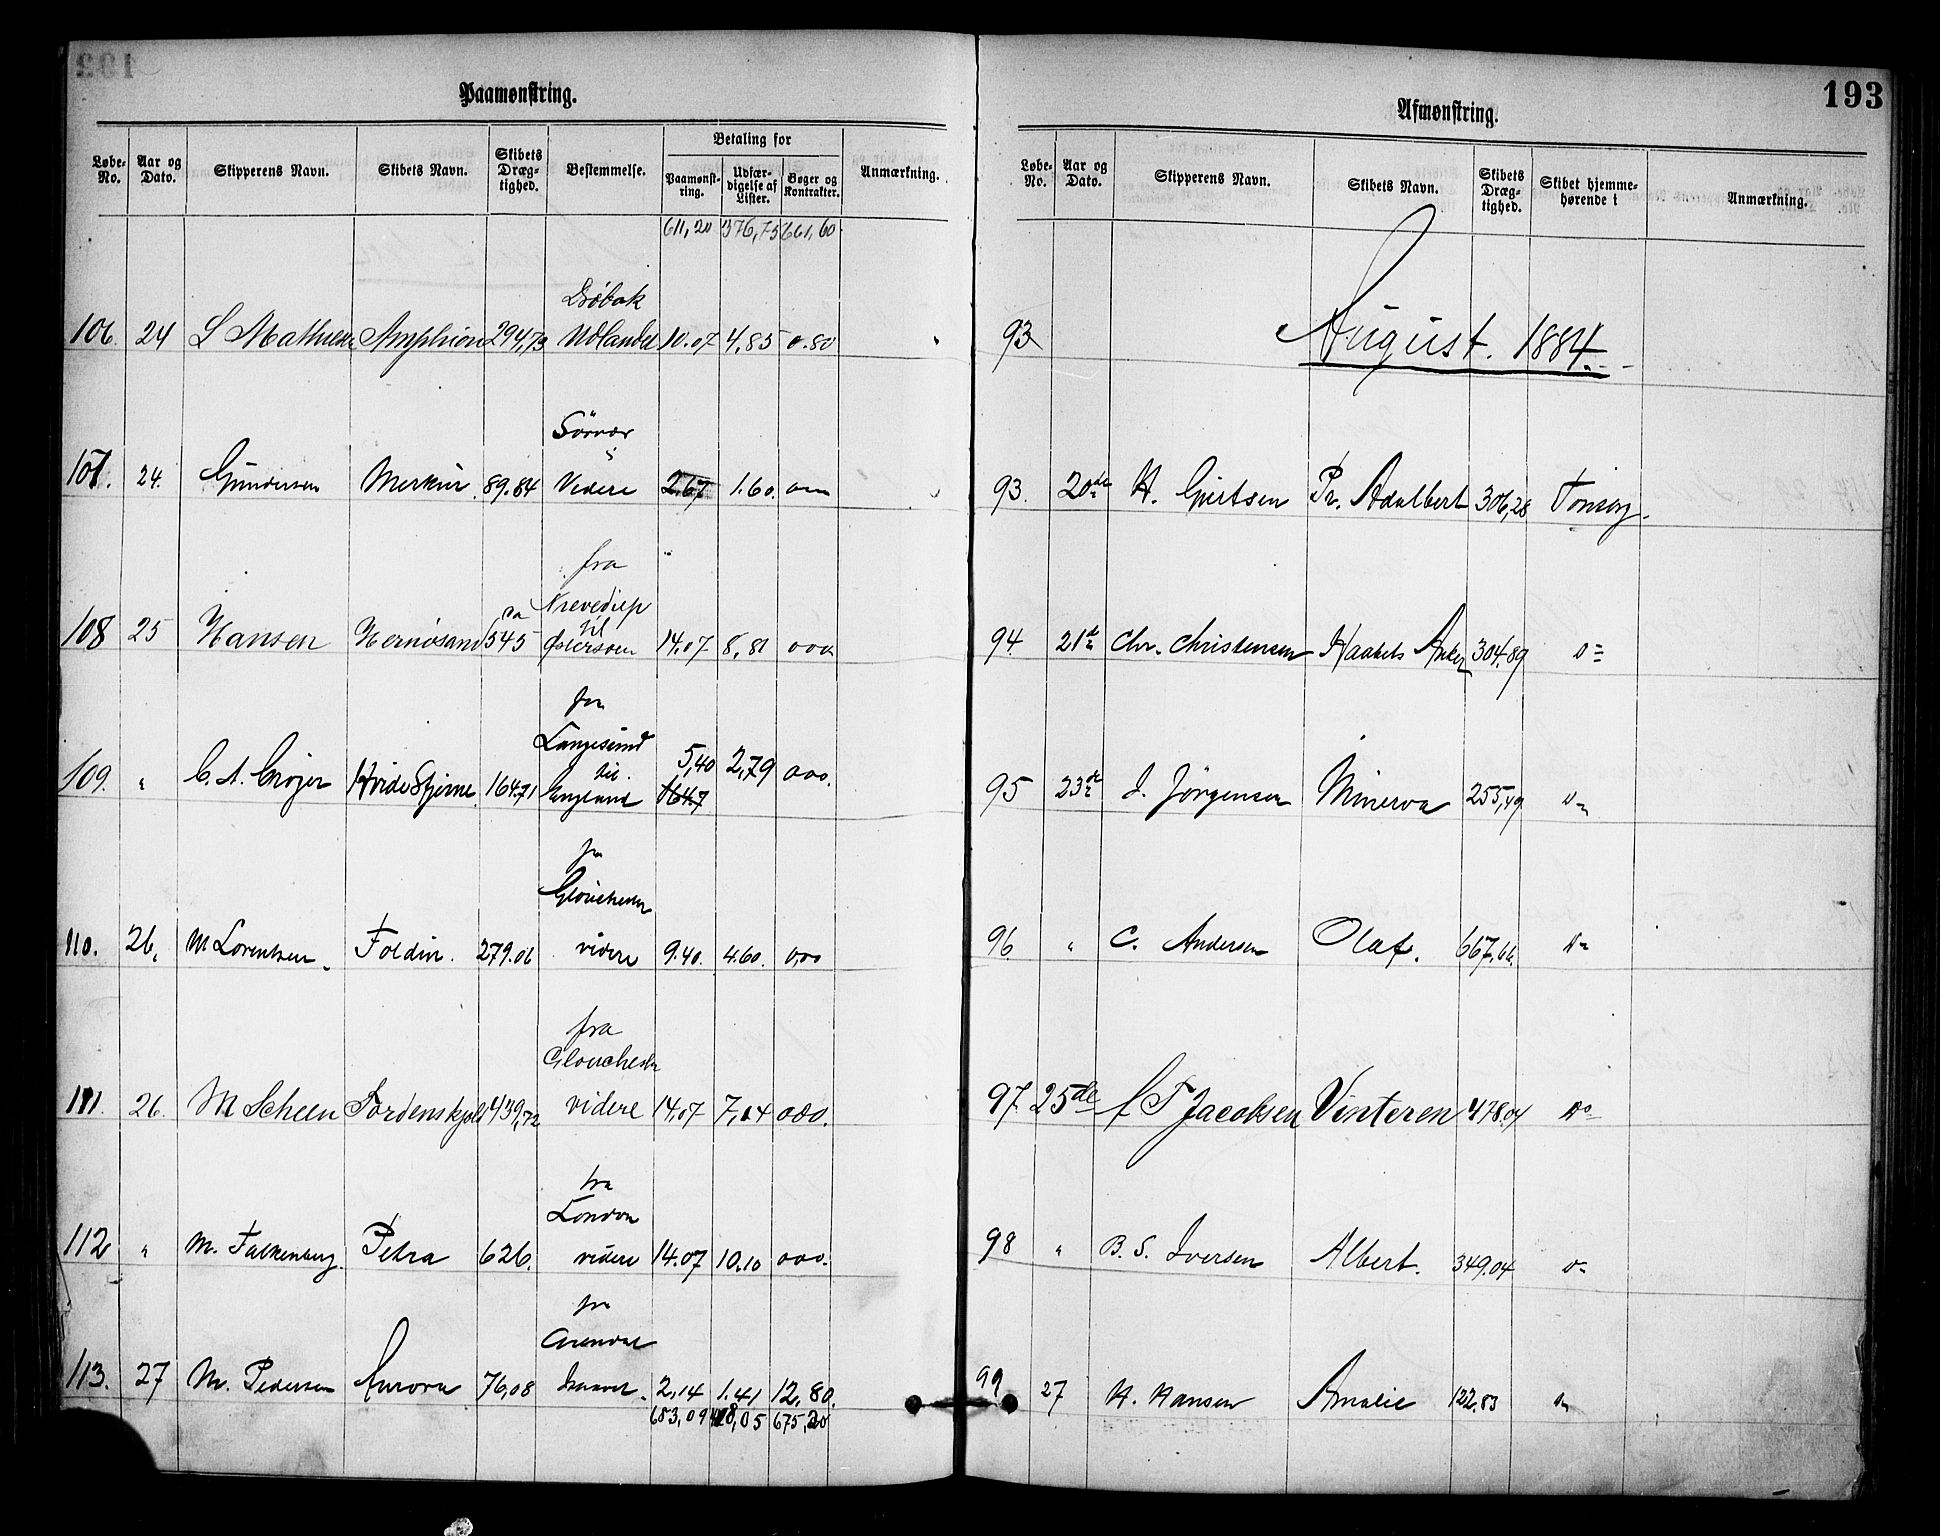 193
Paamønstring.
Løbe-No. Aar og Dato. Skipperens Navn. Skibets Navn. Skibets Dræg-tighed. Bestemmelse. Betaling for Paamønst-ring. Udfær-digelse af Lister. Bøger og Kontrakter. Anmærkning.
611,20 376,75 661,60
Dröbak
106. 24 L Mathisen Amphion 294,73 Udlandet 10.07 4,85 0.80
107. 24. Gundersen Merkur 89.84 Videre 2,67 1.60.
fra
Nievediep
til
108 25 Hansen Hernösand 545 Östersöen 14.07 8,81 000
fra
Langesund
til
109. " C. A. Crøjer Hvide Stjerne 164.71 England 5,40 2,79 000.
fra
Glouchester
110. 26, M Lorentzen Foldin. 279.06 videre 9.40. 4.60. 0,00
fra
Glouchester
111. 26. M Scheen Tordenskjold 439,72 videre 14,07 7,14 000.
fra
London
112 " M. Falkenberg. Petra 626. videre 14.07 10.10 000.
fra
Arendal
113. 27 M. Pedersen Aurora 76,08 2,14 1.41 12,80.
683,09 418,05 675,20
Afmønstring.
193
Løbe-No. Aar og Dato. Skipperens Navn. Skibets Navn. Skibets Dræg-tighed. Skibet hjemme-hørende i Anmærkning.
93 August. 1884.
93. 20de H. Gjertsen Pr. Adalbert 306,28 Tönsbg.
94. 21de Chr. Christensen Haabets Anker 304.89 Do
95 23de J. Jörgensen Minerva 255,49 Do
96 " C. Andersen Olaf. 667,66. Do
97. 25de F Jacobsen Vinteren 478.04 Do
98 " B. S. Iversen Albert. 349.04 Do
99 27 H. Hansen Amalie 122.83 Do